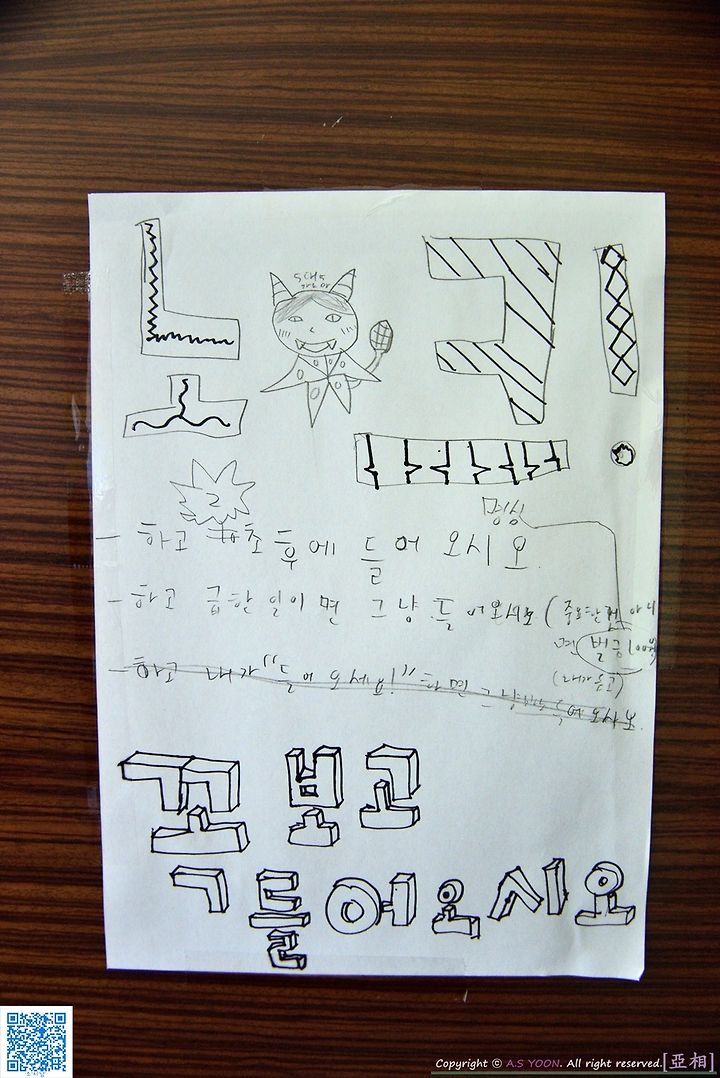 노크!
5대5
가르마
명심
2
- 하고 초 후에 들어 오시오.
- 하고 급한 일이면 그냥 들어오세요 (중요한게 아니
면 벌금 100원)
- 하고 내가 "들어 오세요!" 하면 그냥
꼭 보고
들어오시오
Copyright ⓒ A.S YOON. All right reserved.[亞相]